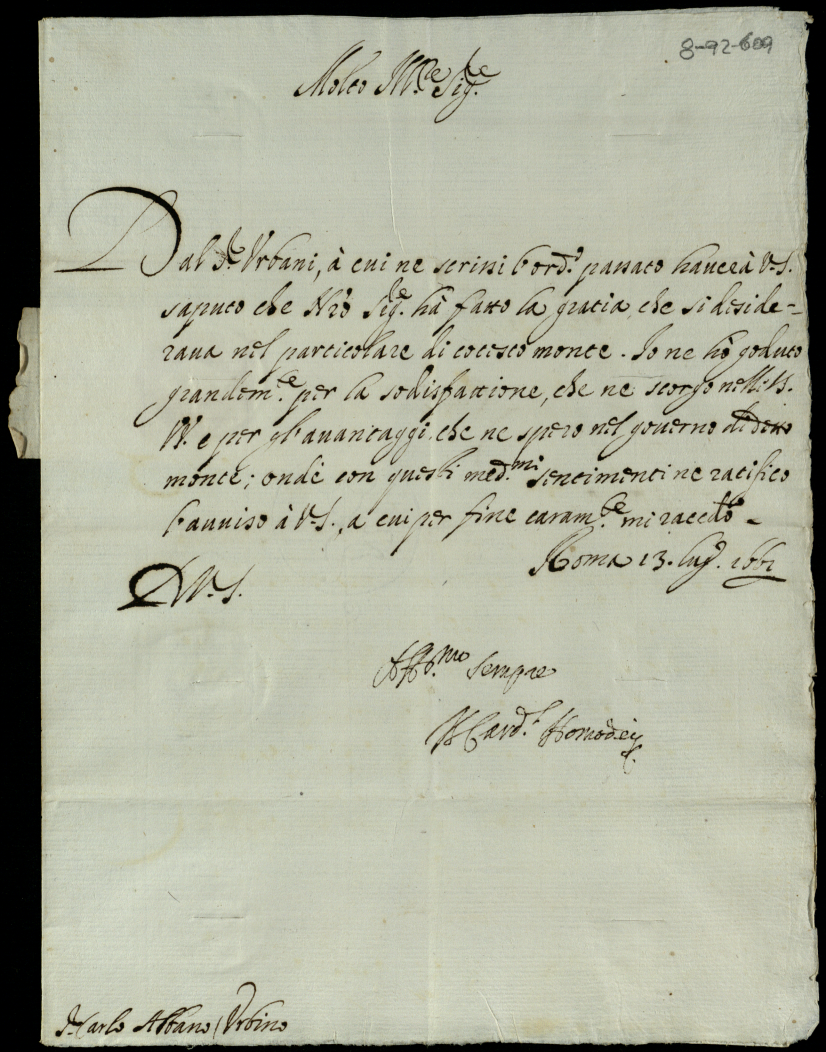 8-92-609
Molto Ill.re Sig.re
Dal S.r Urbani, à cui ne scrissi l'ord.o passato haverà V.S.
saputo che N.ro Sig.re hà fatto la gratia, che si deside-
rava nel particolare di cotesto monte. Io ne hò goduto
grandem.te per la sodisfattione, che ne scorgo nelle SS.
VV. e per gl'avantaggi, che ne spero nel governo di detto
monte; onde con questi med.mi sentimenti ne ratifico
l'avviso à V.S., a cui per fine caram.te mi racc.do -
Roma 13. lug.o 1661
D V.S.
Aff.mo sempre
Il Card.l Homodei
S.r Carlo Albano / Urbino